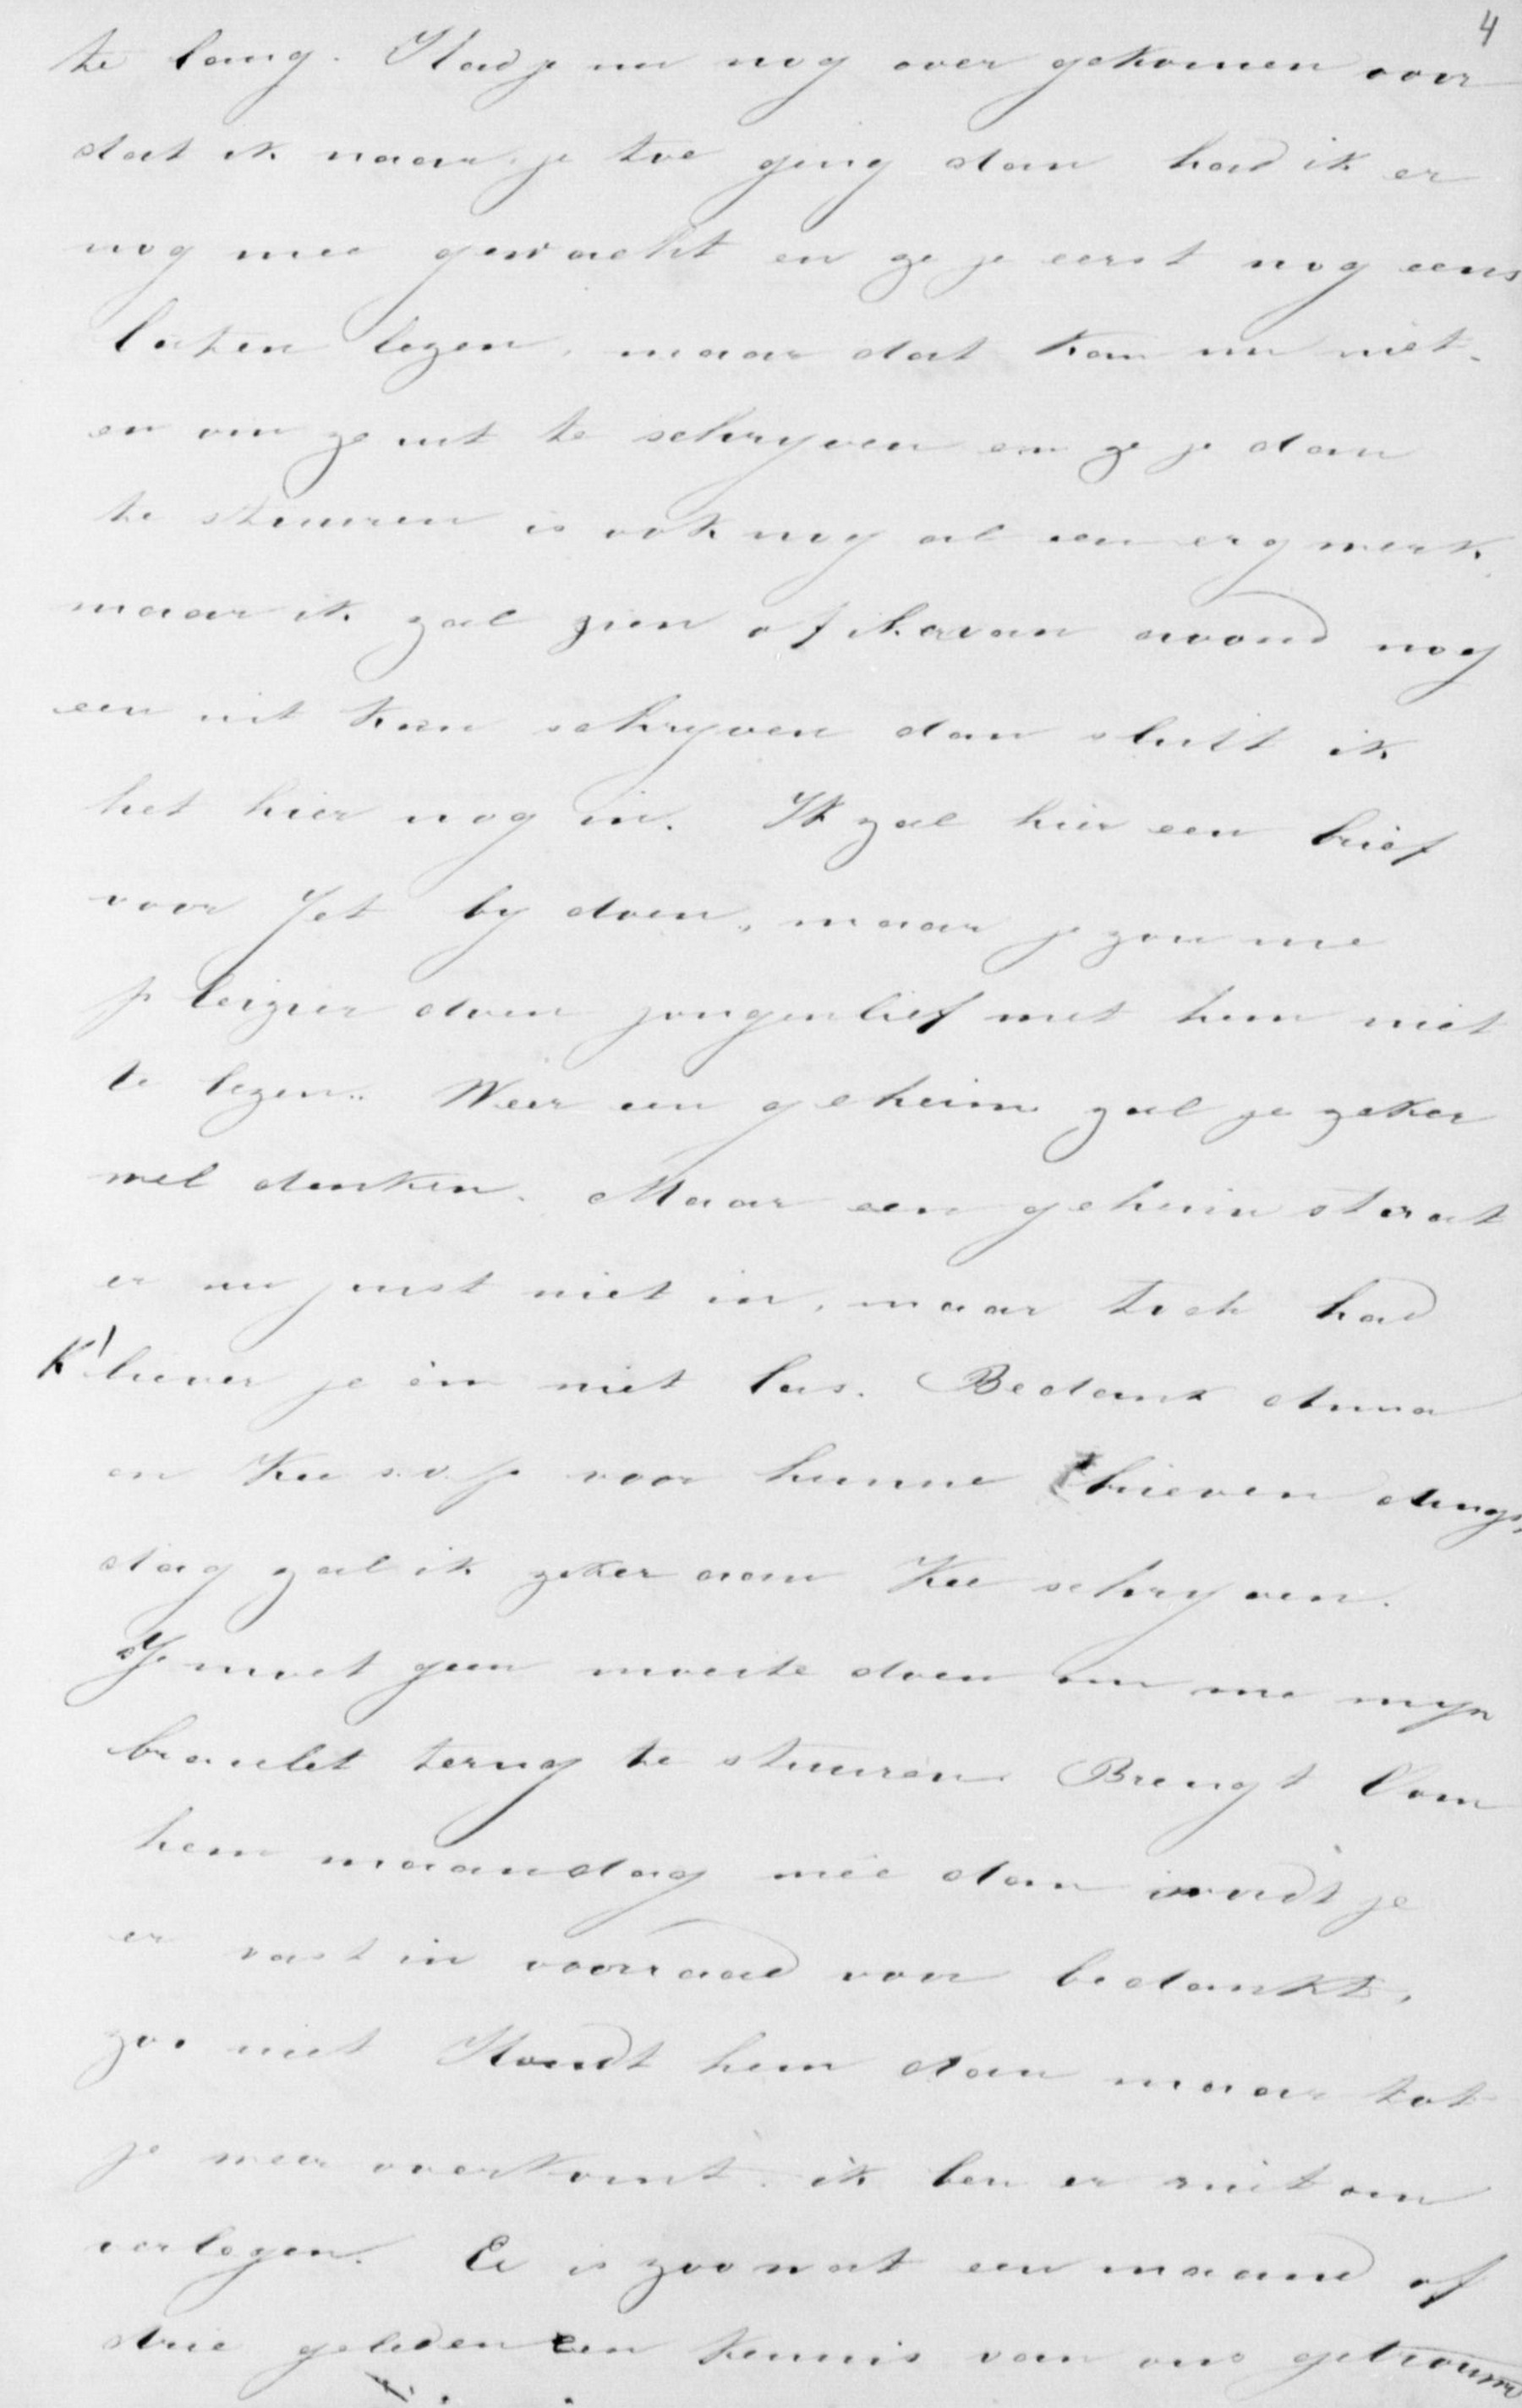 4
te lang. Had je nu nog over gekomen voor
dat ik naar je toe ging dan had ik er
nog mee gewacht en ze je eerst nog eens
laten lezen, maar dat kan nu niet.
en om ze uit te schryven en ze je dan
te stuuren is ook nog al een erg werk,
maar ik zal zien of ik er van avond nog
een uit kan schryven dan sluit ik
het hier nog in. Ik zal hier een brief
voor Jet by doen, maar je zou me
pleizier doen jongenlief met hem niet
te lezen.. Weer een geheim zal je zeker
wel denken. Maar een geheim staat
er nu juist niet in, maar toch had
k' liever je em niet las. Bedank Anna
en Kee s.v.p voor hunne brieven dings,
dag zal ik zeker aan Kee schryven.
Je moet geen moeite doen om me myn
bracelet terug te stuuren. Brengt Oom
hem maandag mée dan wordt je
er vast in voorraad voor bedankt,
zoo niet Houdt hem dan maar tot
je weer overkomt. ik ben er niet om
verlegen. Er is zoo wat een maand of
drie geleden een kennis van ons getrouwd